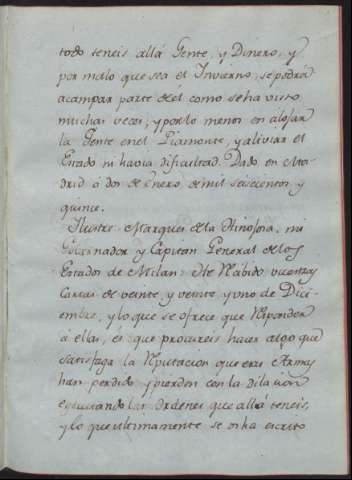 todo teneis allá Gente, y Dinero, y
por malo que sea el Invierno, se podrá
acampar parte de él como se ha visto
muchas veces, y por lo menos en alojar
la Gente en el Piamonte, y aliviar el
Estado ni havia dificultad. Dado en Ma-
drid á dos de Enero de mil seiscentos y
quince.
Ilustre Marques de la Hinojosa, mi
Governador y Capitan General de los
Estados de Milan: He Rābido vuestras
Cartas de veinte, y veinte y uno de Dici-
embre, y lo que se ofrece que Responder
á ellas, és que procureis hacer algo que
satisfaga la Reputacion que esas Armas
han perdido, y pierden con la dilacion
egecutando las órdenes que allá teneis,
y lo que ultimamente se os ha escrito